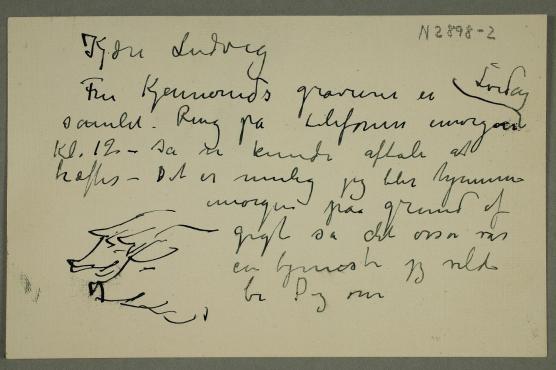 N2898-2
Kjære Ludvig
Fru Kjenneruds gravurer er Lørdag
samlet. Ring på telefonen imorgen
Kl. 12 – så vi kunde aftale at
træffes – Det er mulig jeg blir hjemme
imorgen paa grund af
gigt så det også var
en tjeneste jeg vilde
be Dig om